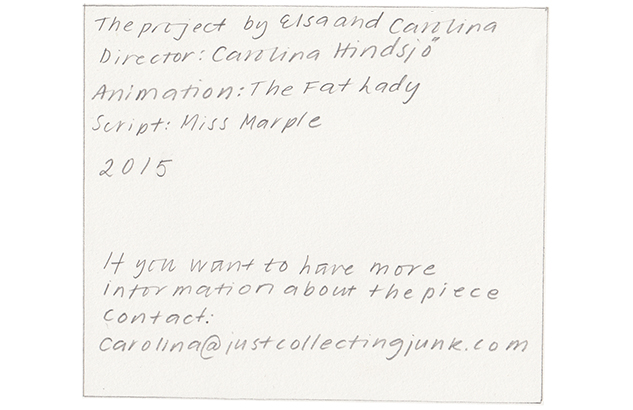 The project by Elsa and Carolina
Director: Carolina Hindsjö
Animation: The Fat Lady
Script: Miss Marple
2015
If you want to have more
information about the piece
contact:
carolina@justcollectingjunk.com